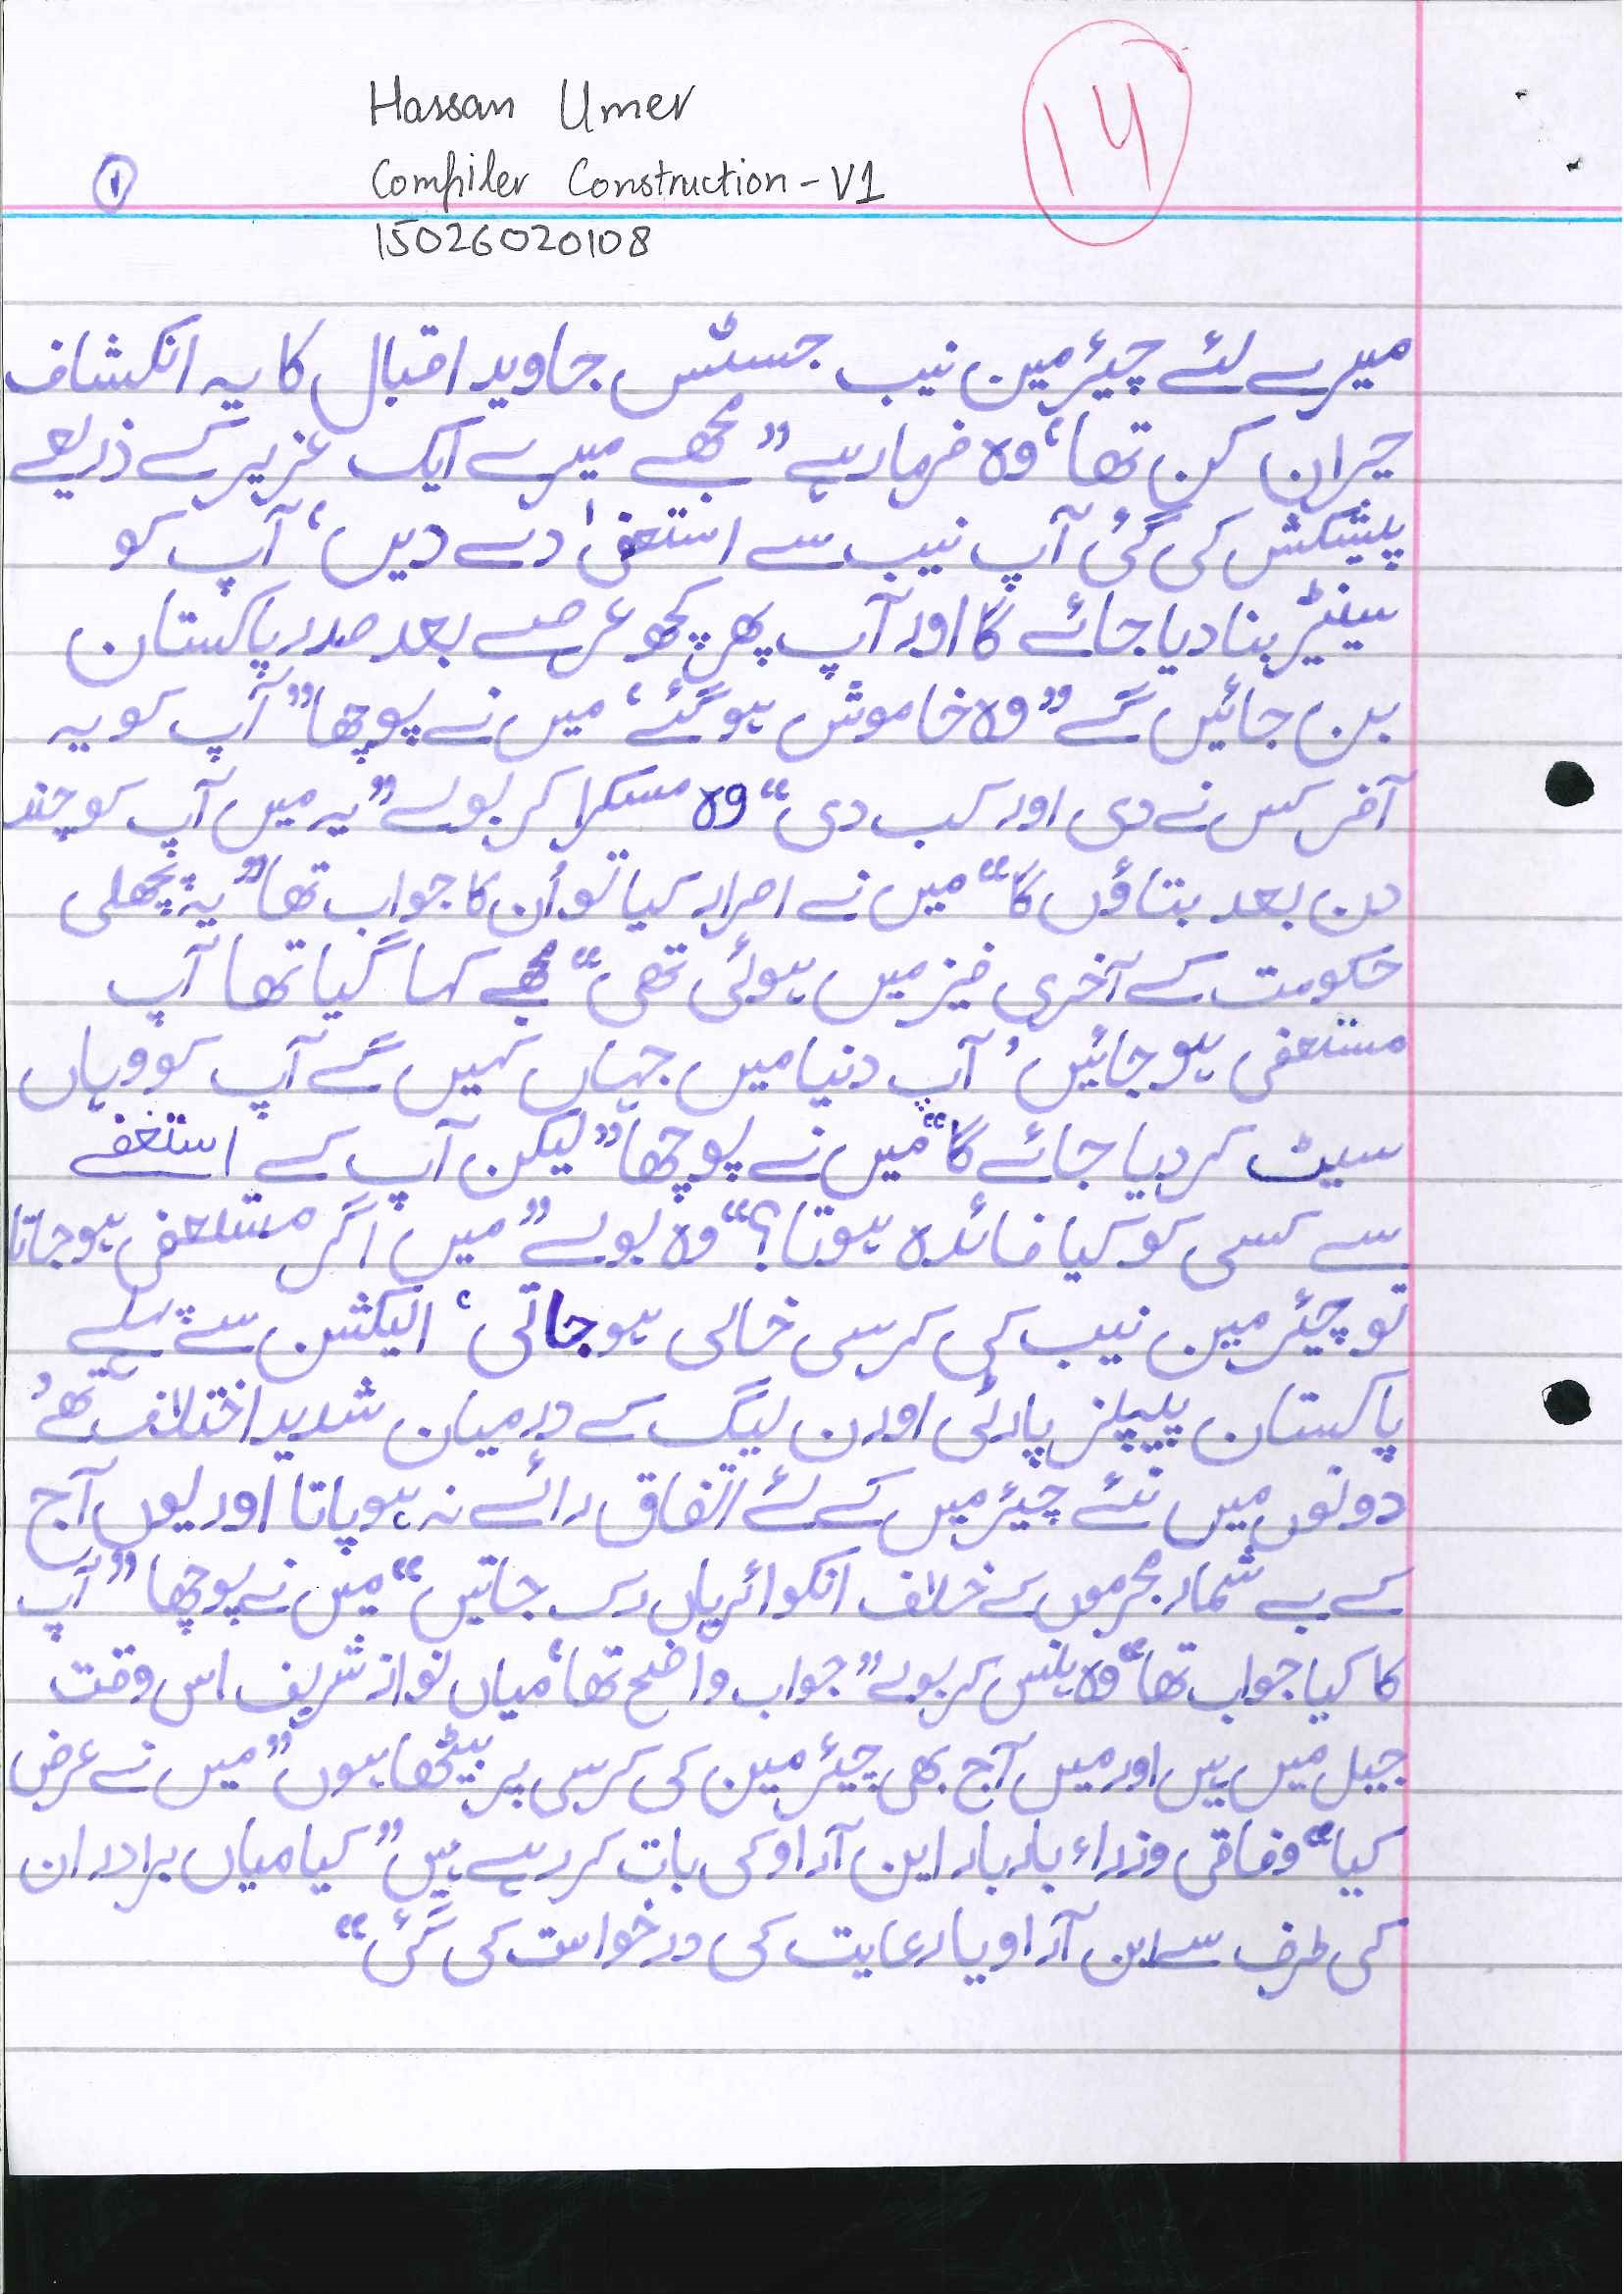 Hassan Umer
14
Compiler Construction - V1
1
15026020108
میرے لئے چیئرمین نیب جسٹس جاوید اقبال کا یہ انکشاف
حیران کن تھا، وہ فرما رہے ”مجھے میرے ایک عزیز کے ذریعے
پیشکش کی گئی آپ نیب سے استعفیٰ دے دیں، آپ کو
سینیٹر بنا دیا جائے گا اور آپ پھر کچھ عرصے بعد صدر پاکستان
بن جائیں گے” وہ خاموش ہوگئے، میں نے پوچھا” آپ کو یہ
آفر کس نے دی اور کب دی“ وہ مسکرا کر بولے” یہ میں آپ کو چند
دن بعد بتاؤں گا“ میں نے اصرار کیا تو اُن کا جواب تھا” یہ پچھلی
حکومت کے آخری فیز میں ہوئی تھی“ مجھے کہا گیا تھا آپ
مستعفی ہو جائیں، آپ دنیا میں جہاں کہیں گے آپ کو وہاں
سیٹ کر دیا جائے گا“ میں نے پوچھا” لیکن آپ کے استعفے
سے کسی کو کیا فائدہ ہوتا؟“ وہ بولے” میں اگر مستعفی ہو جاتا
تو چیئرمین نیب کی کرسی خالی ہو جاتی، الیکشن سے پہلے
پاکستان پیپلز پارٹی اور ن لیگ کے درمیان شدید اختلاف تھے،
دونوں میں نئے چیئرمیں کے لئے اتفاق رائے نہ ہو پاتا اور یوں آج
کے بے شمار مجرموں کے خلاف انکوائریاں رک جاتیں“ میں نے پوچھا” آپ
کا کیا جواب تھا“ وہ ہنس کر بولے” جواب واضح تھا، میاں نواز شریف اس وقت
جیل میں ہیں اور میں آج بھی چیئرمین کی کرسی پر بیٹھا ہوں” میں نے عرض
کیا“ وفاقی وزراء بار بار این آر او کی بات کر رہے ہیں” کیا میاں برادران
کی طرف سے این آر او یا رعایت کی درخواست کی گئی“